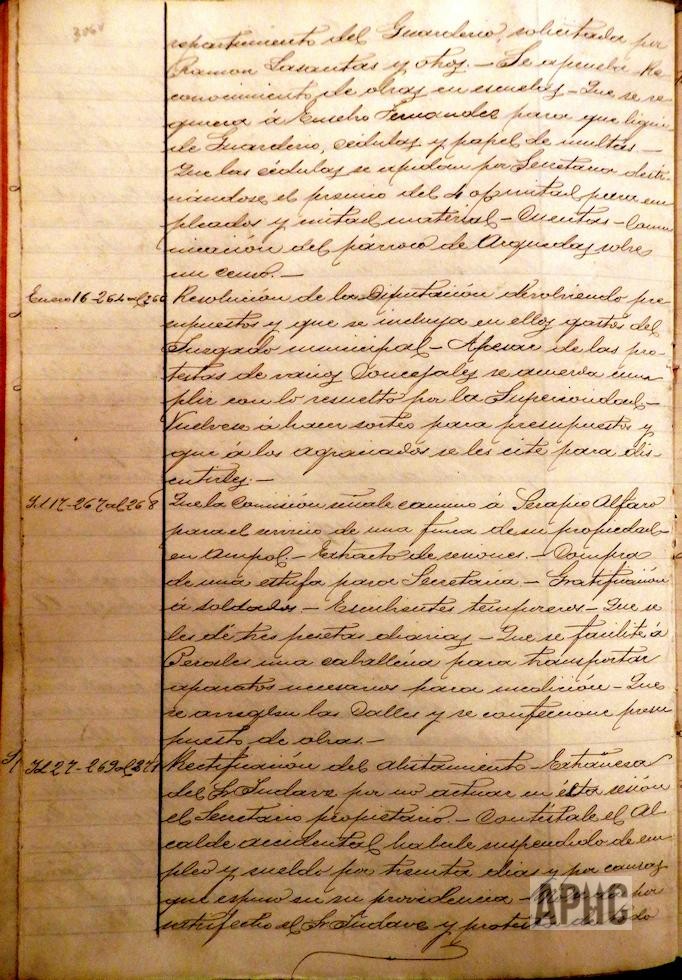 306v
repartimiento del Guarderio, solicitada por
Ramon Lasantas y otros. - Se aprueba Re-
conocimiento de obras en escuelas - Que se re-
quiera á Eusebio Fernandez para que liqui-
de Guarderio, cédulas y papel de multas. -
Que las cédulas se expidan por Secretaria desti-
nándose el premio del 4 op mitad para em-
pleados y mitad material - Cuentas - Comu-
nicación del párroco de Arguedas sobre
un censo. -
Enero 16 - 264 al 266 Resolución de la Diputación devolviendo pre-
supuestos y que se incluya en ellos gastos del
Juzgado municipal - Apesar de las pro-
testas de varios Concejales se acuerda cum-
plir con lo resuelto por la Superioridad -
Vuelvese á hacer sorteo para presupuestos y
que á los agraciados se les cite para dis-
cutirles. -
Id 17 - 267 al 268 Que la Comisión señale camino á Serapio Alfaro
para el servicio de una finca de su propiedad
en Ampol. - Extracto de sesiones. - Compra
de una estufa para Secretaria - Gratificación
á soldados - Escribientes temporeros - Que se
les dé tres pesetas diarias - Que se facilite á
Perales una caballería para transportar
aparatos necesarios para medición - Que
se arreglen las Calles y se confeccione presu-
puesto de obras. -
Id 27 - 269 al 271 Rectificación del alistamiento - Extrañesa
del Sr por no actuar en ésta sesión
el Secretario propietario. - Contéstale el Al-
calde accidental habule suspendido de em-
pleo y sueldo por treinta dias y por causas
que espuso en su providencia - por
satisfecho el Sr y protesta de todo
APHG